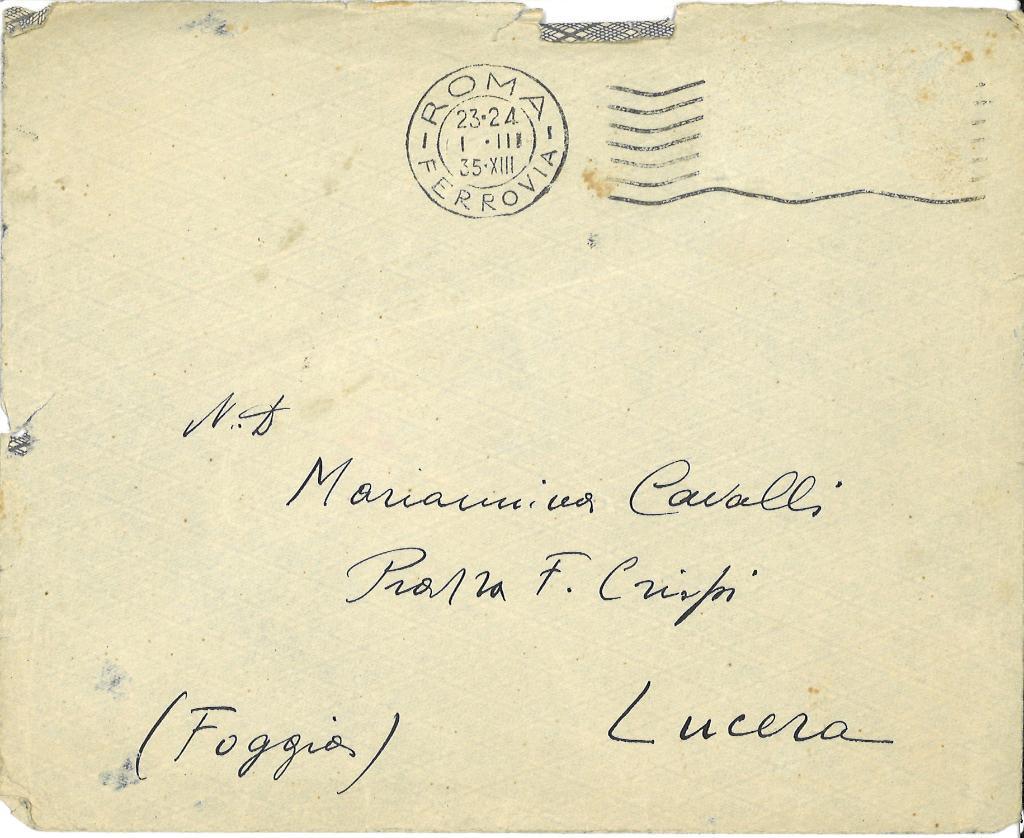 ROMA
23·24
1 · III
35·XIII
FERROVIA
N.D
Mariannina Cavalli
Piazza F. Crispi
Lucera
(Foggia)